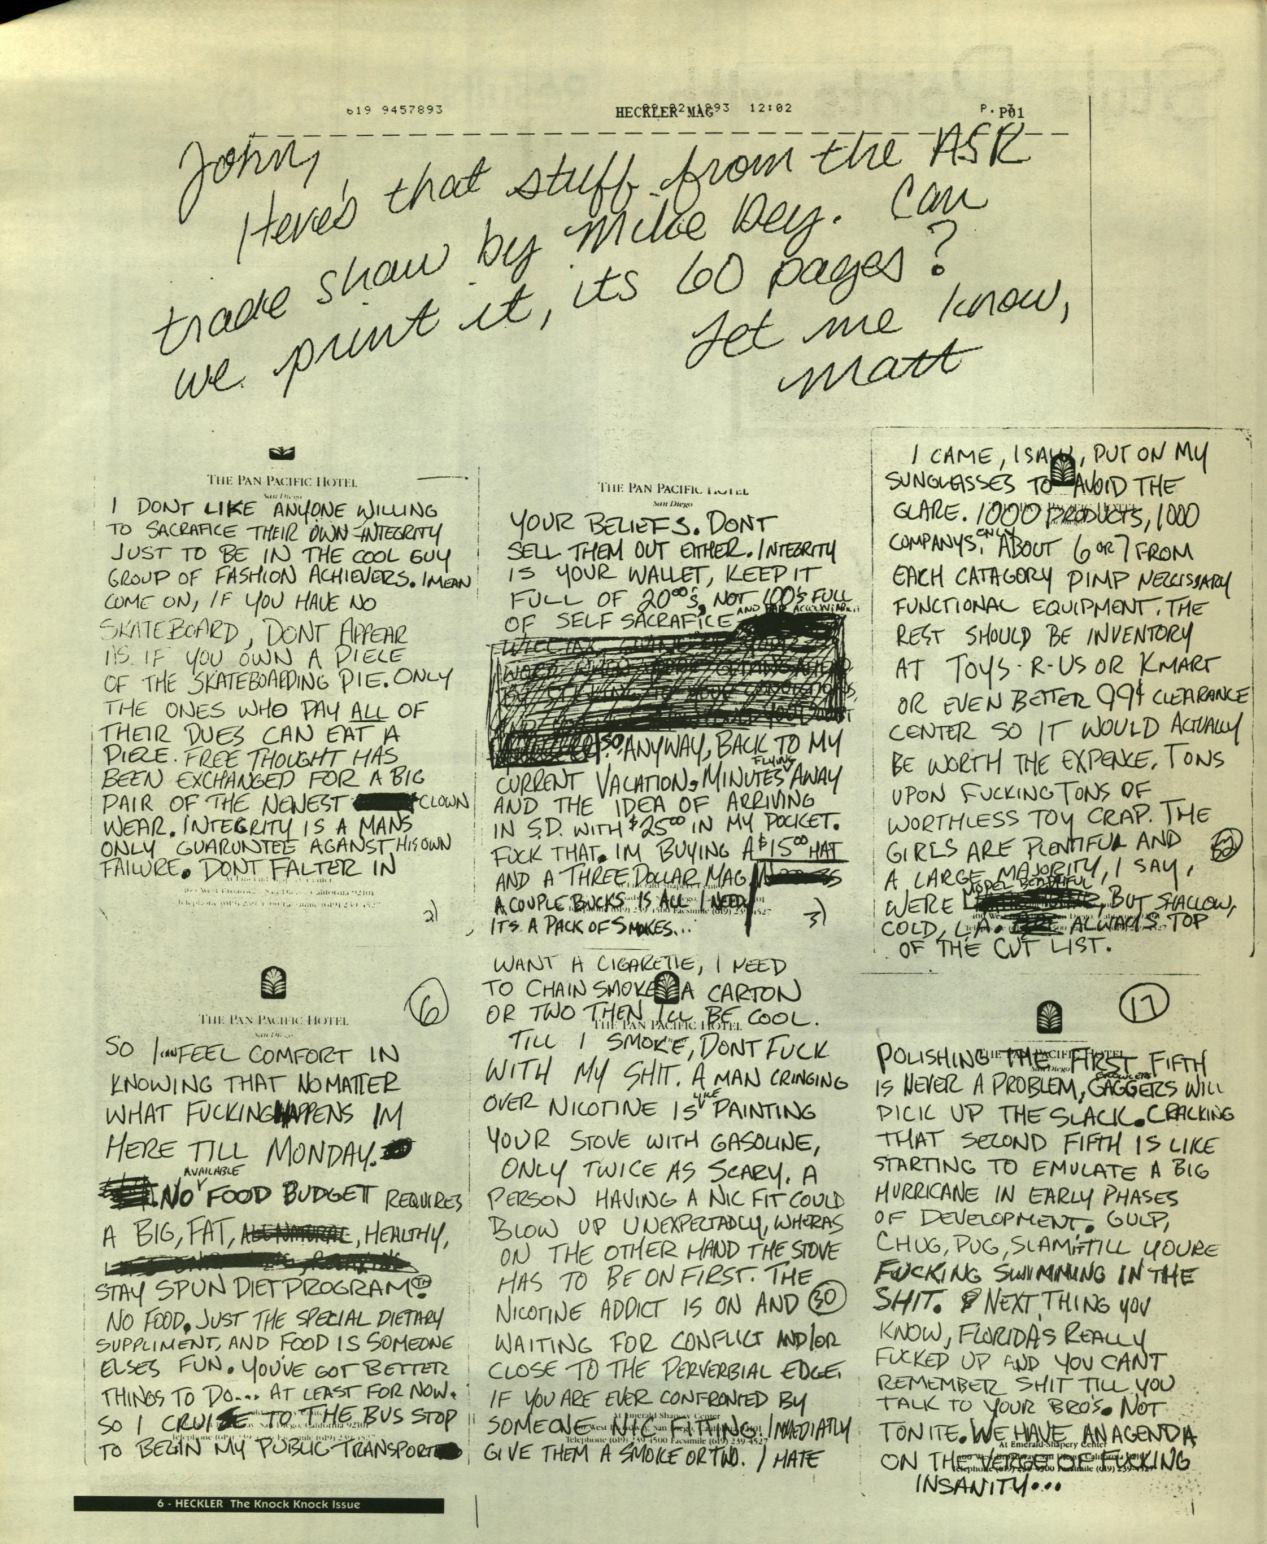 619 9457893 HECKLER MAG 12:02 P. P01
John,
Here's that stuff from the ASR
trade show by Mike Dey. Can
we print it, its 60 pages?
Let me know,
Matt
THE PAN PACIFIC HOTEL
San Diego
I DONT LIKE ANYONE WILLING
TO SACRAFICE THEIR OWN INTEGRITY
JUST TO BE IN THE COOL GUY
GROUP OF FASHION ACHIEVERS. I MEAN
COME ON, IF YOU HAVE NO
SKATEBOARD, DONT APPEAR
AS IF YOU OWN A PIECE
OF THE SKATEBOARDING PIE. ONLY
THE ONES WHO PAY ALL OF
THEIR DUES CAN EAT A
PIECE. FREE THOUGHT HAS
BEEN EXCHANGED FOR A BIG
PAIR OF THE NEWEST CLOWN
WEAR. INTEGRITY IS A MANS
ONLY GUARUNTEE AGANST HIS OWN
FAILURE. DONT FALTER IN
2)
THE PAN PACIFIC HOTEL
San Diego
YOUR BELIEFS. DONT
SELL THEM OUT EITHER. INTEGRITY
IS YOUR WALLET, KEEP IT
FULL OF 20⁰⁰'s, NOT 100'S FULL
OF SELF SACRAFICE
SO ANYWAY, BACK TO MY
CURRENT VACATION. MINUTES FLYING AWAY
AND THE IDEA OF ARRIVING
IN S.D. WITH $25⁰⁰ IN MY POCKET.
FUCK THAT. IM BUYING A $15⁰⁰ HAT
AND A THREE DOLLAR MAG
A COUPLE BUCKS IS ALL I NEED
ITS A PACK OF SMOKES...
3)
I CAME, I SAW, PUT ON MY
SUNGLASSES TO AVOID THE
GLARE. 1000 PRODUCTS, 1000
COMPANYS. ONLY ABOUT 6 OR 7 FROM
EACH CATAGORY PIMP NECCISSARY
FUNCTIONAL EQUIPMENT. THE
REST SHOULD BE INVENTORY
AT TOYS-R-US OR KMART
OR EVEN BETTER 99¢ CLEARANCE
CENTER SO IT WOULD ACTUALLY
BE WORTH THE EXPENCE. TONS
UPON FUCKING TONS OF
WORTHLESS TOY CRAP. THE
GIRLS ARE PLENTIFUL AND
A LARGE MAJORITY, I SAY,
WERE MODEL BEAUTIFUL, BUT SHALLOW,
COLD, L.A. ALWAYS TOP
OF THE CUT LIST.
6
THE PAN PACIFIC HOTEL
San Diego
SO I FEEL COMFORT IN
KNOWING THAT NO MATTER
WHAT FUCKING HAPPENS IM
HERE TILL MONDAY.
NO AVAILABLE FOOD BUDGET REQUIRES
A BIG, FAT, ALL NATURAL, HEALTHY,
STAY SPUN DIET PROGRAM™
NO FOOD. JUST THE SPECIAL DIETARY
SUPPLIMENT, AND FOOD IS SOMEONE
ELSES FUN. YOU'VE GOT BETTER
THINGS TO DO... AT LEAST FOR NOW.
SO I CRUISE TO THE BUS STOP
TO BEGIN MY PUBLIC TRANSPORT
WANT A CIGARETTE, I NEED
TO CHAIN SMOKE A CARTON
OR TWO THEN ILL BE COOL.
THE PAN PACIFIC HOTEL
TILL I SMOKE, DONT FUCK
WITH MY SHIT. A MAN CRINGING
OVER NICOTINE IS LIKE PAINTING
YOUR STOVE WITH GASOLINE,
ONLY TWICE AS SCARY. A
PERSON HAVING A NIC FIT COULD
BLOW UP UNEXPECTADLY, WHERAS
ON THE OTHER HAND THE STOVE
HAS TO BE ON FIRST. THE
NICOTINE ADDICT IS ON AND 30
WAITING FOR CONFLICT AND/OR
CLOSE TO THE PERVERBIAL EDGE.
IF YOU ARE EVER CONFRONTED BY
SOMEONE NIC FITTING IMMEDIATLY
GIVE THEM A SMOKE OR TWO. I HATE
17
POLISHING THE FIRST FIFTH
IS NEVER A PROBLEM, GAGGERS WILL
PICK UP THE SLACK. CRACKING
THAT SECOND FIFTH IS LIKE
STARTING TO EMULATE A BIG
HURRICANE IN EARLY PHASES
OF DEVELOPMENT. GULP,
CHUG, PUG, SLAM, TILL YOURE
FUCKING SWIMMING IN THE
SHIT. NEXT THING YOU
KNOW, FLORIDA'S REALLY
FUCKED UP AND YOU CANT
REMEMBER SHIT TILL YOU
TALK TO YOUR BRO'S. NOT
TONITE. WE HAVE AN AGENDA
At Emerald-Shapery Center
ON THE VERGE OF FUCKING
INSANITY...
6 - HECKLER The Knock Knock Issue